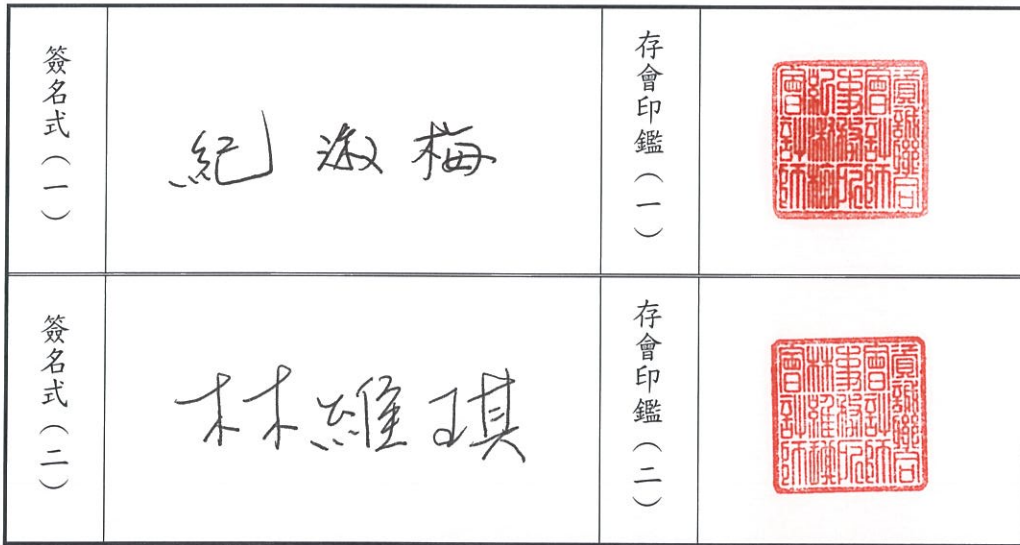 簽名式（一）
紀淑梅
存會印鑑（一）
貿誠聯合
會計師
事務所
紀淑梅
會計師
簽名式（二）
林維琪
存會印鑑（二）
會計師
事務所
林維琪
會計師